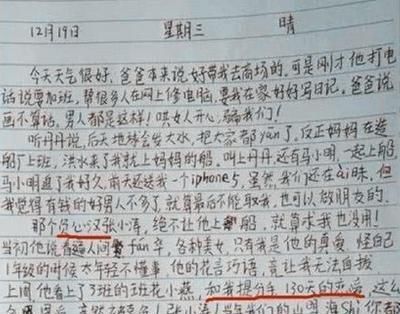 12月19日 星期三 晴
今天天气很好,爸爸本来说好带我去商场的,可是刚才他打电
话说要加班,帮很多人在网上修电脑,要我在家好好写日记。爸爸说
画不算话,男人都是这样!哄女人开心,骗我们!
听丹丹说,后天地球会发大水,把大家都yan了,反正妈妈在造
船厂上班,洪水来了我就上妈妈的船。叫上丹丹,还有马小明一起上船,
马小明追了我好久,前天还送我一个iphone5,虽然我们还在ai昧,但
我觉得有钱的好男人不多了,就算最后不能取我,也可以做朋友的。
那个负心汉张小涛,绝不让他上船,就算求我也没用!
当初他说看遍人间fan辛,各种美女,只有我是他的真爱,怪自己
1年级的时候太年轻不懂事,他的花言巧语,竟让我无法自拔
上周,他看上了3班的班花小燕,和我提分手,130天的恋爱,这么